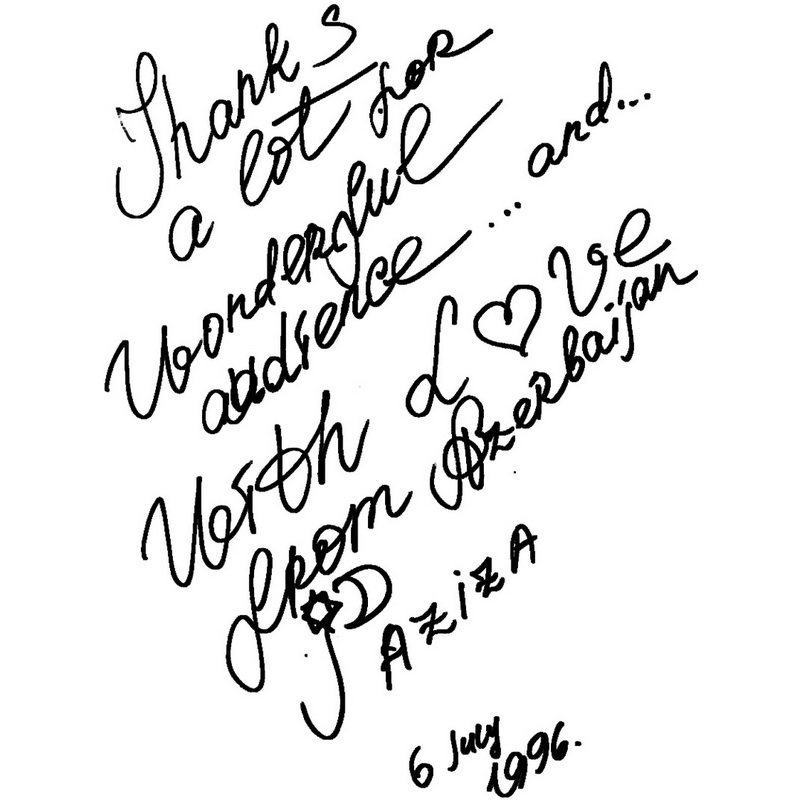 Thanks
a lot for
Wonderful
audience... and...
With L♡ve
from Azerbaijan
Aziza
6 July
1996.